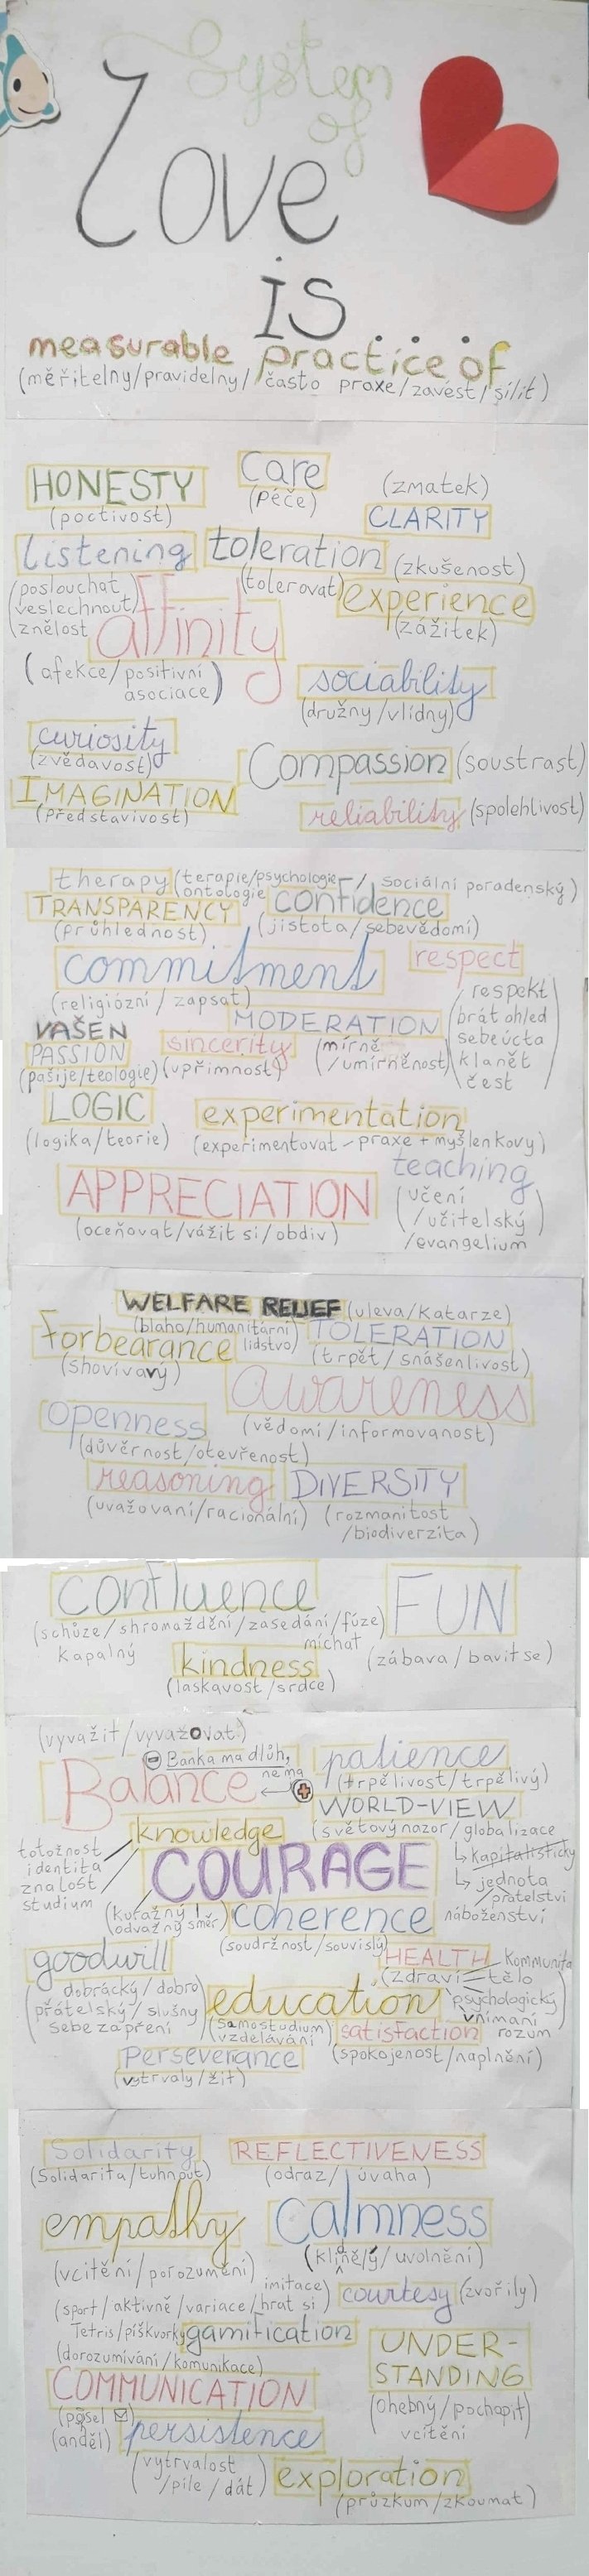 System
of
Love
is
measurable practice of
(měřitelny/pravidelny/ často praxe/zavést/sílit)
HONESTY
(poctivost)
Care
(péče)
(zmatek)
CLARITY
listening
(poslouchat
veslechnout/
znělost
toleration
(tolerovat)
(zkušenost)
experience
(zážitek)
affinity
(afekce/positivní
asociace)
sociability
(družny/vlídny)
curiosity
(zvědavost)
Compassion (soustrast)
IMAGINATION
(představivost)
reliability (spolehlivost)
therapy (terapie/psychologie-/ sociální poradenský)
ontologie
TRANSPARENCY
(průhlednost)
confidence
(jistota/sebevědomí)
commitment
(religiózní/zapsat)
respect
(respekt
brát ohled
sebeúcta
klanět
čest)
MODERATION
(mírně
/umírněnost)
VAŠEN
PASSION
(pašije/teologie)
sincerity
(upřímnost)
LOGIC
(logika/teorie)
experimentation
(experimentovat-praxe+myšlenkovy)
APPRECIATION
(oceňovat/vážit si/obdiv)
teaching
(učení
/učitelský)
/evangelium
WELFARE RELIEF (uleva/katarze)
(blaho/humanitární)
lidstvo)
forbearance
(shovívavý)
TOLERATION
(trpět/snášenlivost)
awareness
(vědomí/informovanost)
openness
(důvěrnost/otevřenost)
reasoning
(uvažovaní/racionální)
DIVERSITY
(rozmanitost
/biodiverzita)
confluence
(schůze/shromaždění/zasedání/fúze)
kapalný
míchat
FUN
(zábava/bavit se)
kindness
(laskavost/srdce)
(vyvážit/vyvažovat)
⊖ Banka ma dluh,
nemá
Balance ← ⊕
patience
(trpělivost/trpělivý)
WORLD-VIEW
(světový nazor/globalizace
↳ kapitalistický
↳ jednota
/přatelství
náboženství
knowledge
totožnost
identita
znalost
studium
COURAGE
(kuražný/
odvážný směr)
coherence
(soudržnost/souvislý)
goodwill
(dobrácký/dobro
přátelský/slušny
sebezapření)
HEALTH
(zdraví
Kommunita
tělo
psychologický
vnímaní
rozum
education
(samostudium)
vzdelávání
satisfaction
(spokojenost/naplnění)
Perseverance
(vytrvaly/žít)
Solidarity
(Solidarita/tuhnout)
REFLECTIVENESS
(odraz/úvaha)
empathy
(vcitění/porozumění)
Calmness
(klidně/ý/uvolnění)
imitace)
(sport/aktivně/variace/hrat si
Tetris/piškvorky
gamification
courtesy (zvořily)
UNDER-
STANDING
(Ohebný/pochopit)
vcítění
(dorozumívání/komunikace)
COMMUNICATION
(posel ✉)
(anděl)
persistence
(vytrvalost
/píle/dát)
exploration
(průzkum/zkoumat)